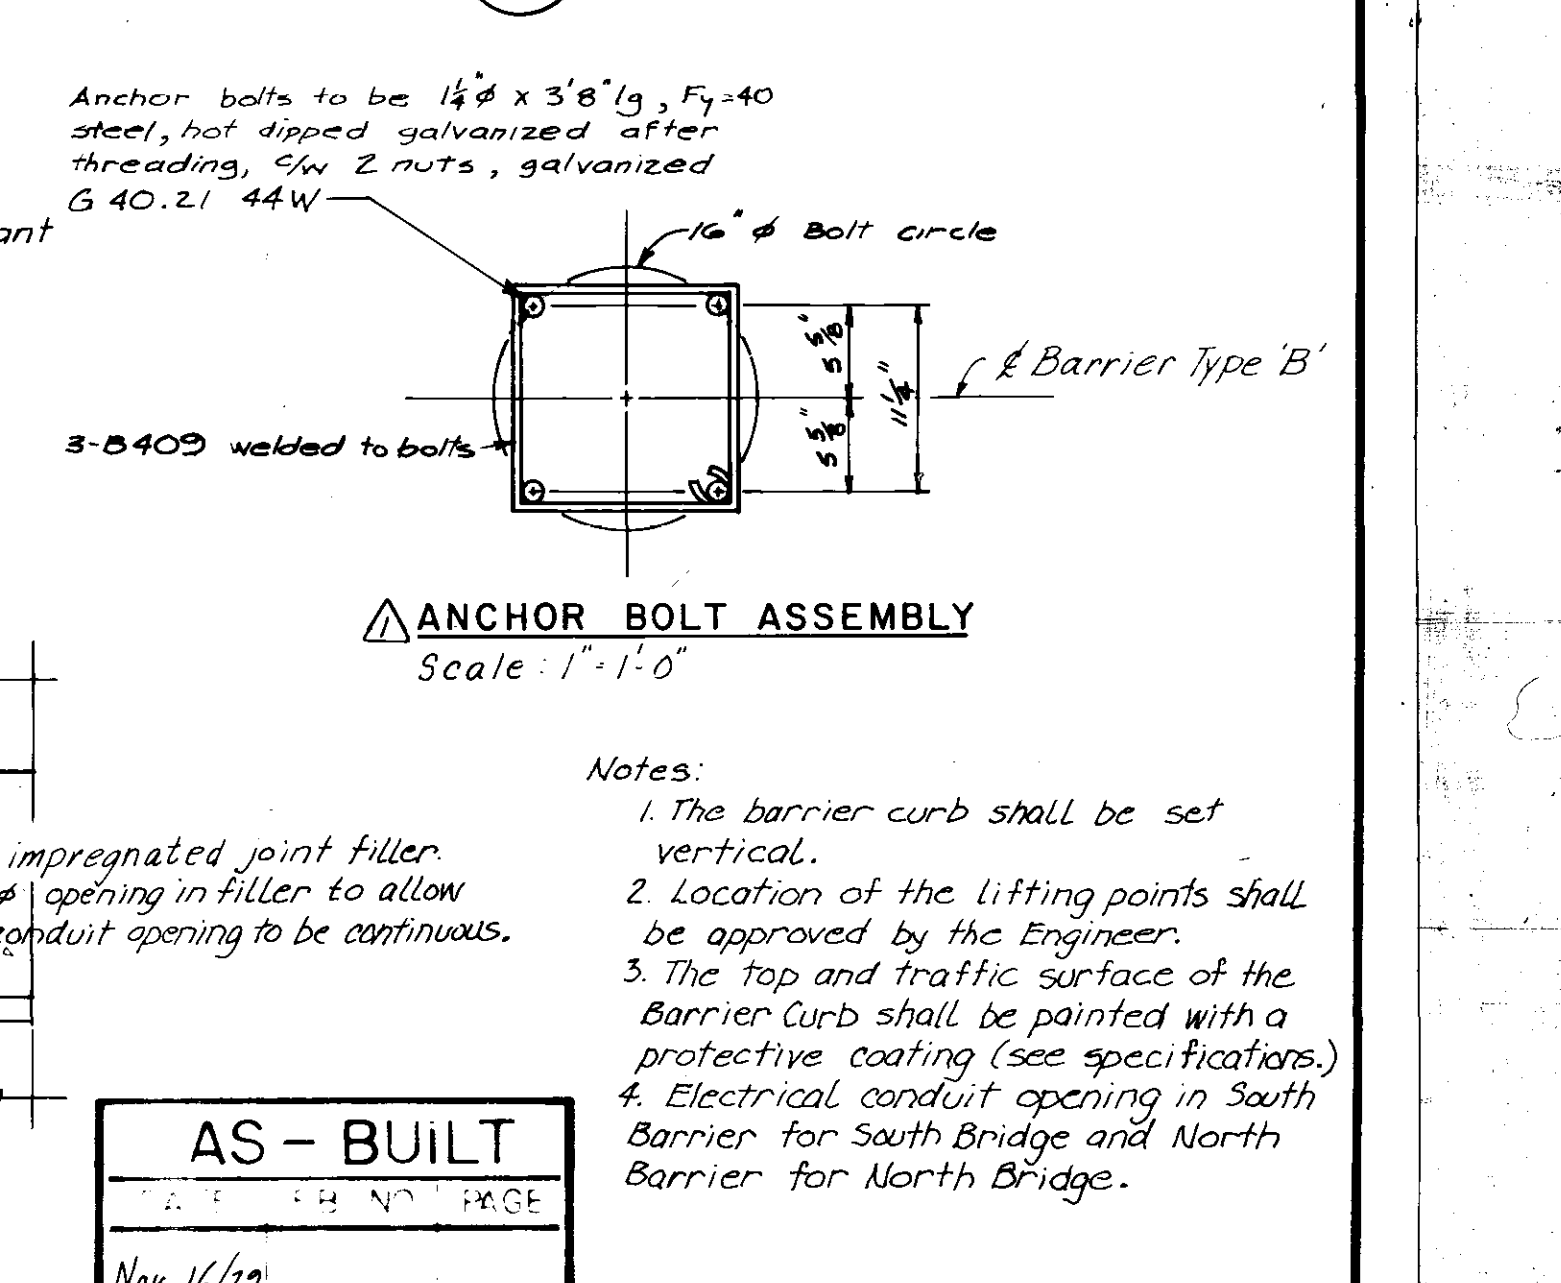 Anchor bolts to be 1¼"ø x 3'8" lg, Fy=40
steel, hot dipped galvanized after
threading, c/w 2 nuts, galvanized
G 40.21 44W
ant
16" ø Bolt circle
5 5/8"
5 5/8"
11 1/4"
℄ Barrier Type 'B'
3-B409 welded to bolts
1
ANCHOR BOLT ASSEMBLY
Scale: 1"=1'-0"
impregnated joint filler.
ø opening in filler to allow
conduit opening to be continuous.
Notes:
1. The barrier curb shall be set
vertical.
2. Location of the lifting points shall
be approved by the Engineer.
3. The top and traffic surface of the
Barrier Curb shall be painted with a
protective coating (see specifications.)
4. Electrical conduit opening in South
Barrier for South Bridge and North
Barrier for North Bridge.
AS-BUILT
PAGE
Nov 16/79